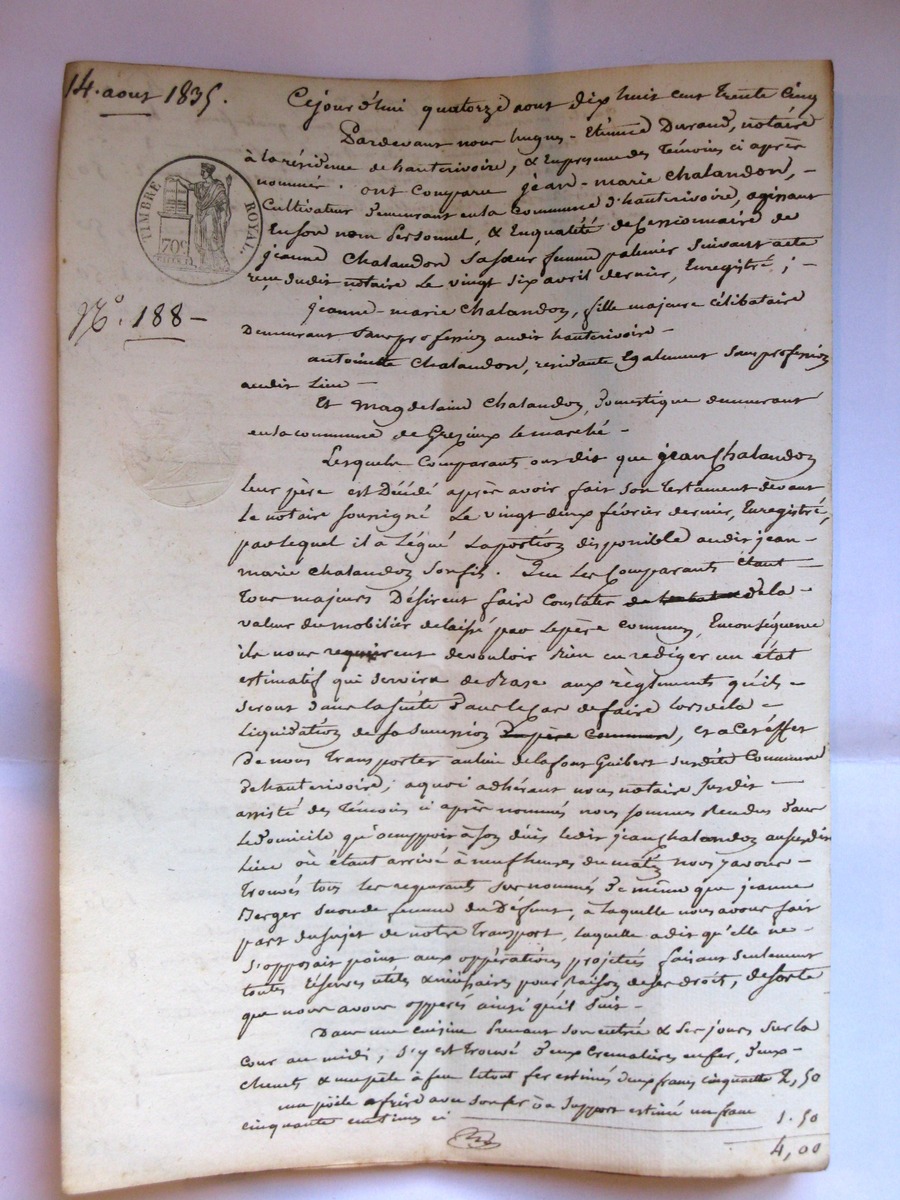 14. aout 1835.
Cejourd'hui quatorze aout dix huit cent trente cinq
Pardevant nous hugues-Etienne Durand, notaire
à la résidence de hauterivoire, & En presence des Témoins ci après
nommés. ont Comparu jean-marie Chalandon, -
Cultivateur demeurant en la Commune d'hauterivoire, agissant
En son nom Personnel, & En qualité de Cessionnaire de
jeanne Chalandon sa sœur femme palmier suivant acte
reçu dudit notaire le vingt six avril dernier, Enregistré ; -
TIMBRE ROYAL
70c
N.º 188 -
jeanne-marie Chalandon, fille majeure célibataire
Demeurant sans profession audit hauterivoire -
antoinette Chalandon, résidante Egalement sans profession
audit Lieu -
Et Magdelaine Chalandon, domestique demeurant
en la commune de Grezieux le marché -
Lesquels Comparants ont dit que jean Chalandon
leur père est Décédé après avoir fait son Testament devant
le notaire soussigné le vingt deux février dernier, Enregistré,
par lequel il a Légué la portion disponible audit jean-
marie Chalandon son fils. Que les Comparants étant -
Tous majeurs Désirent faire constater de la -
valeur du mobilier delaissé par le père commun, En conséquence
ils nous requièrent de vouloir bien en rediger un état
estimatif qui servira de Base aux règlements qu'ils -
seront dans la suite dans le cas de faire lors de la -
Liquidation de sa succession du père commun, et à cet effet
De nous Transporter au lieu de lafont Guibert susdite Commune
d'hauterivoire; a quoi adhérant nous notaire susdit -
assisté des Témoins ci après nommés nous sommes Rendus dans
le domicile qu'occuppoit à son décès ledit jean Chalandon au susdit
Lieu où étant arrivé à neuf heures du matin nous y avons -
Trouvés tous les requerants sus nommés de même que jeanne
Berger seconde femme du Défunt, à laquelle nous avons fait
part du sujet de notre Transport, laquelle a dit qu'elle ne -
s'opposait point aux oppérations projetées faisant seulement
toutes Réserves utiles & nécessaires pour Raison de ses droits, de sorte
que nous avons opperés ainsi qu'il suit -
Dans une cuisine Prenant son entrée & ses jours sur la
cour au midi, s'y est trouvé deux Cremalières en fer, deux -
chenets & une pèle à feu le tout fer estimés deux francs cinquante 2,50
une poële a frire avec son fer ou support estimé un franc
cinquante centimes ci 1.50
4,00